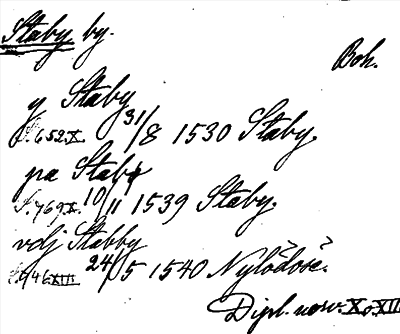 Staby by.
Boh.
y Staby
S. 652. X. 31/8 1530 Staby.
pa Staby
S. 769. X. 10/11 1539 Staby.
vdj Stabby
S. 946. XIII 24/5 1540 Nylödose.
Dipl. norv. X o XIII